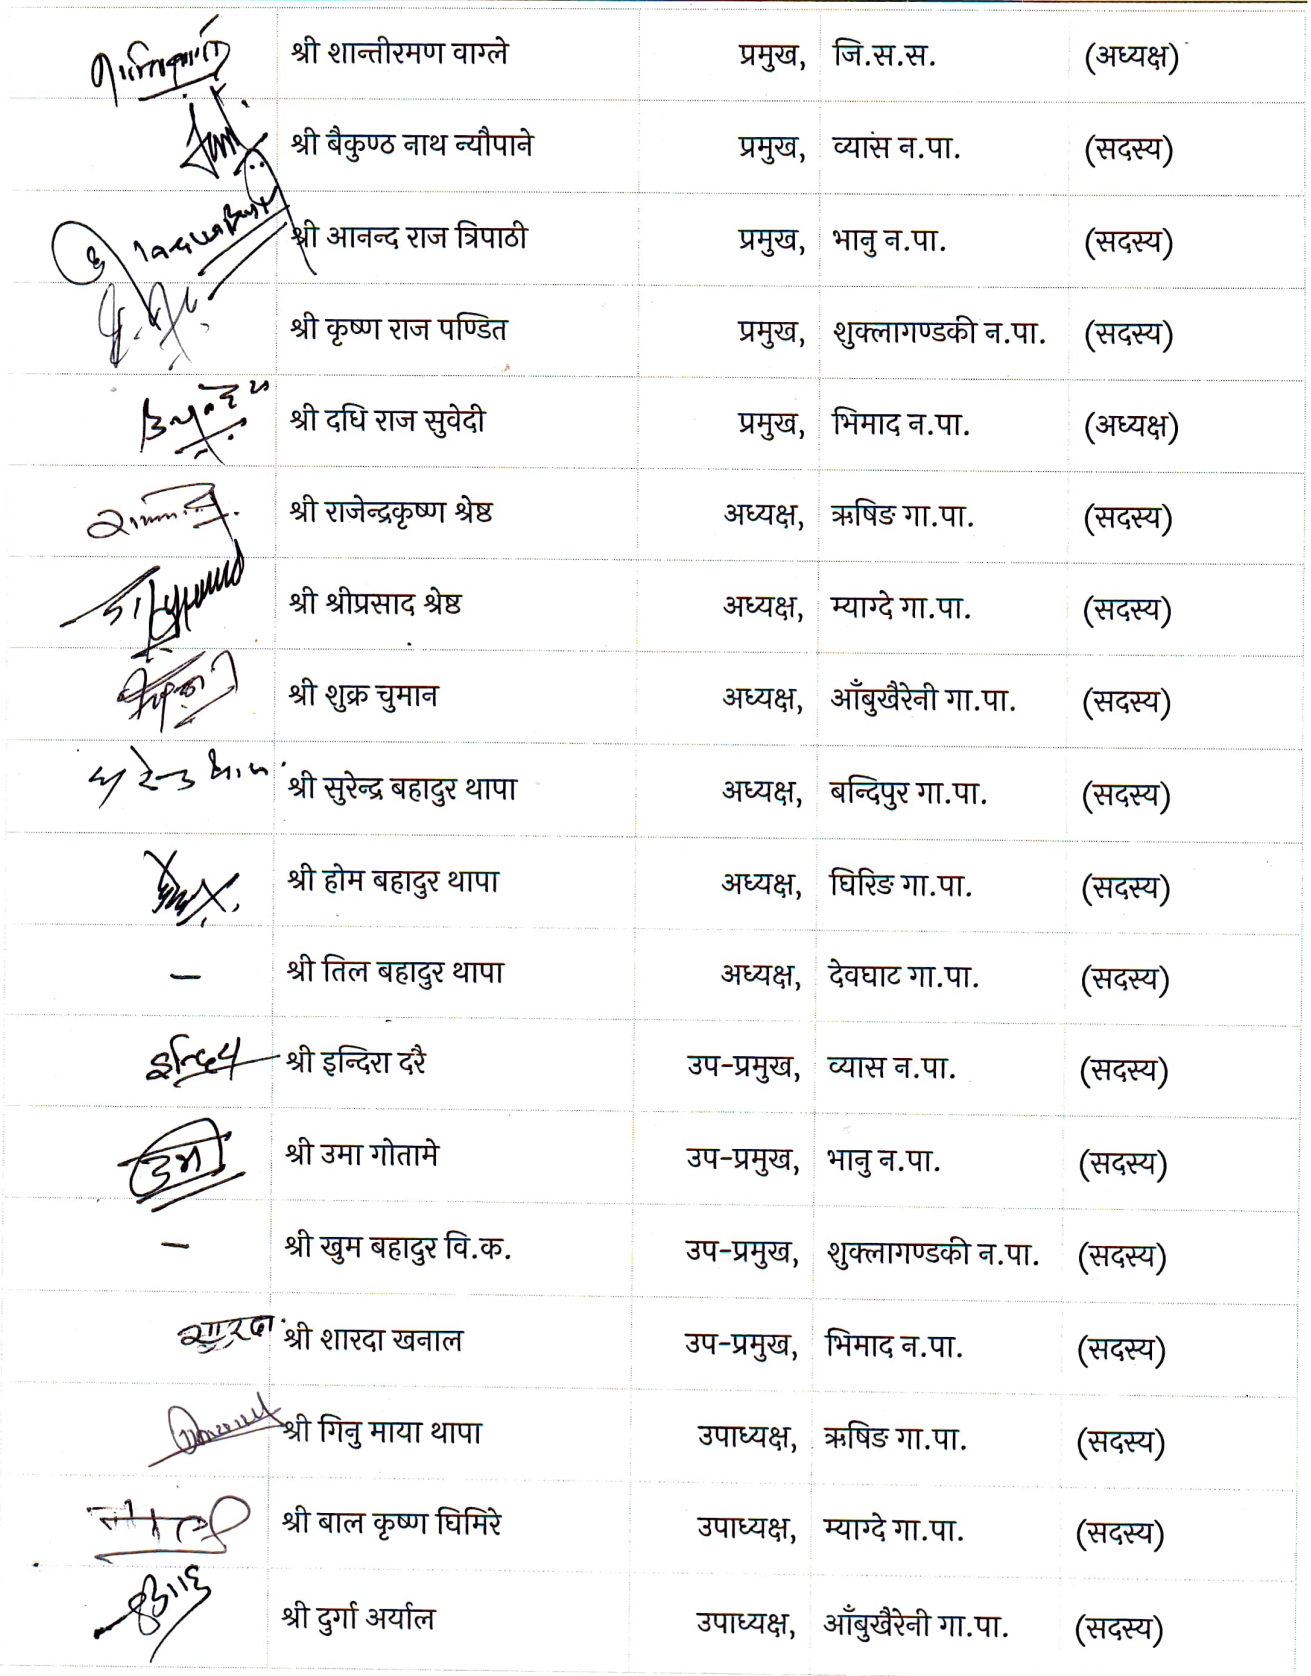 श्री शान्तीरमण वाग्ले प्रमुख, जि.स.स. (अध्यक्ष)
श्री बैकुण्ठ नाथ न्यौपाने प्रमुख, व्यास न.पा. (सदस्य)
श्री आनन्द राज त्रिपाठी प्रमुख, भानु न.पा. (सदस्य)
श्री कृष्ण राज पण्डित प्रमुख, शुक्लागण्डकी न.पा. (सदस्य)
श्री दधि राज सुवेदी प्रमुख, भिमाद न.पा. (अध्यक्ष)
श्री राजेन्द्रकृष्ण श्रेष्ठ अध्यक्ष, ऋषिङ गा.पा. (सदस्य)
श्री श्रीप्रसाद श्रेष्ठ अध्यक्ष, म्याग्दे गा.पा. (सदस्य)
श्री शुक्र चुमान अध्यक्ष, आँबुखैरेनी गा.पा. (सदस्य)
श्री सुरेन्द्र बहादुर थापा अध्यक्ष, बन्दिपुर गा.पा. (सदस्य)
श्री होम बहादुर थापा अध्यक्ष, घिरिङ गा.पा. (सदस्य)
– श्री तिल बहादुर थापा अध्यक्ष, देवघाट गा.पा. (सदस्य)
इन्दिरा श्री इन्दिरा दरै उप-प्रमुख, व्यास न.पा. (सदस्य)
उमा श्री उमा गोतामे उप-प्रमुख, भानु न.पा. (सदस्य)
– श्री खुम बहादुर वि.क. उप-प्रमुख, शुक्लागण्डकी न.पा. (सदस्य)
शारदा श्री शारदा खनाल उप-प्रमुख, भिमाद न.पा. (सदस्य)
श्री गिनु माया थापा उपाध्यक्ष, ऋषिङ गा.पा. (सदस्य)
श्री बाल कृष्ण घिमिरे उपाध्यक्ष, म्याग्दे गा.पा. (सदस्य)
श्री दुर्गा अर्याल उपाध्यक्ष, आँबुखैरेनी गा.पा. (सदस्य)